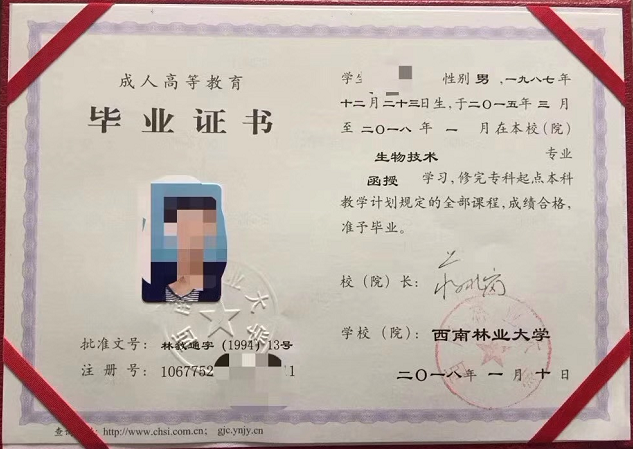 成人高等教育
毕业证书
批准文号：林教通字 (1994) 13号
注 册 号：1067752 1
http://www.chsi.com.cn； gjc.ynjy.cn
学生 性别 男，一九八七年
十二月二十三日生，于二〇一五年 三 月
至 二〇一八年 一 月在本校（院）
生物技术 专业
函授 学习，修完专科起点本科
教学计划规定的全部课程，成绩合格，
准予毕业。
校（院）长：
学校（院）：西南林业大学
二〇一八年 一 月 十 日